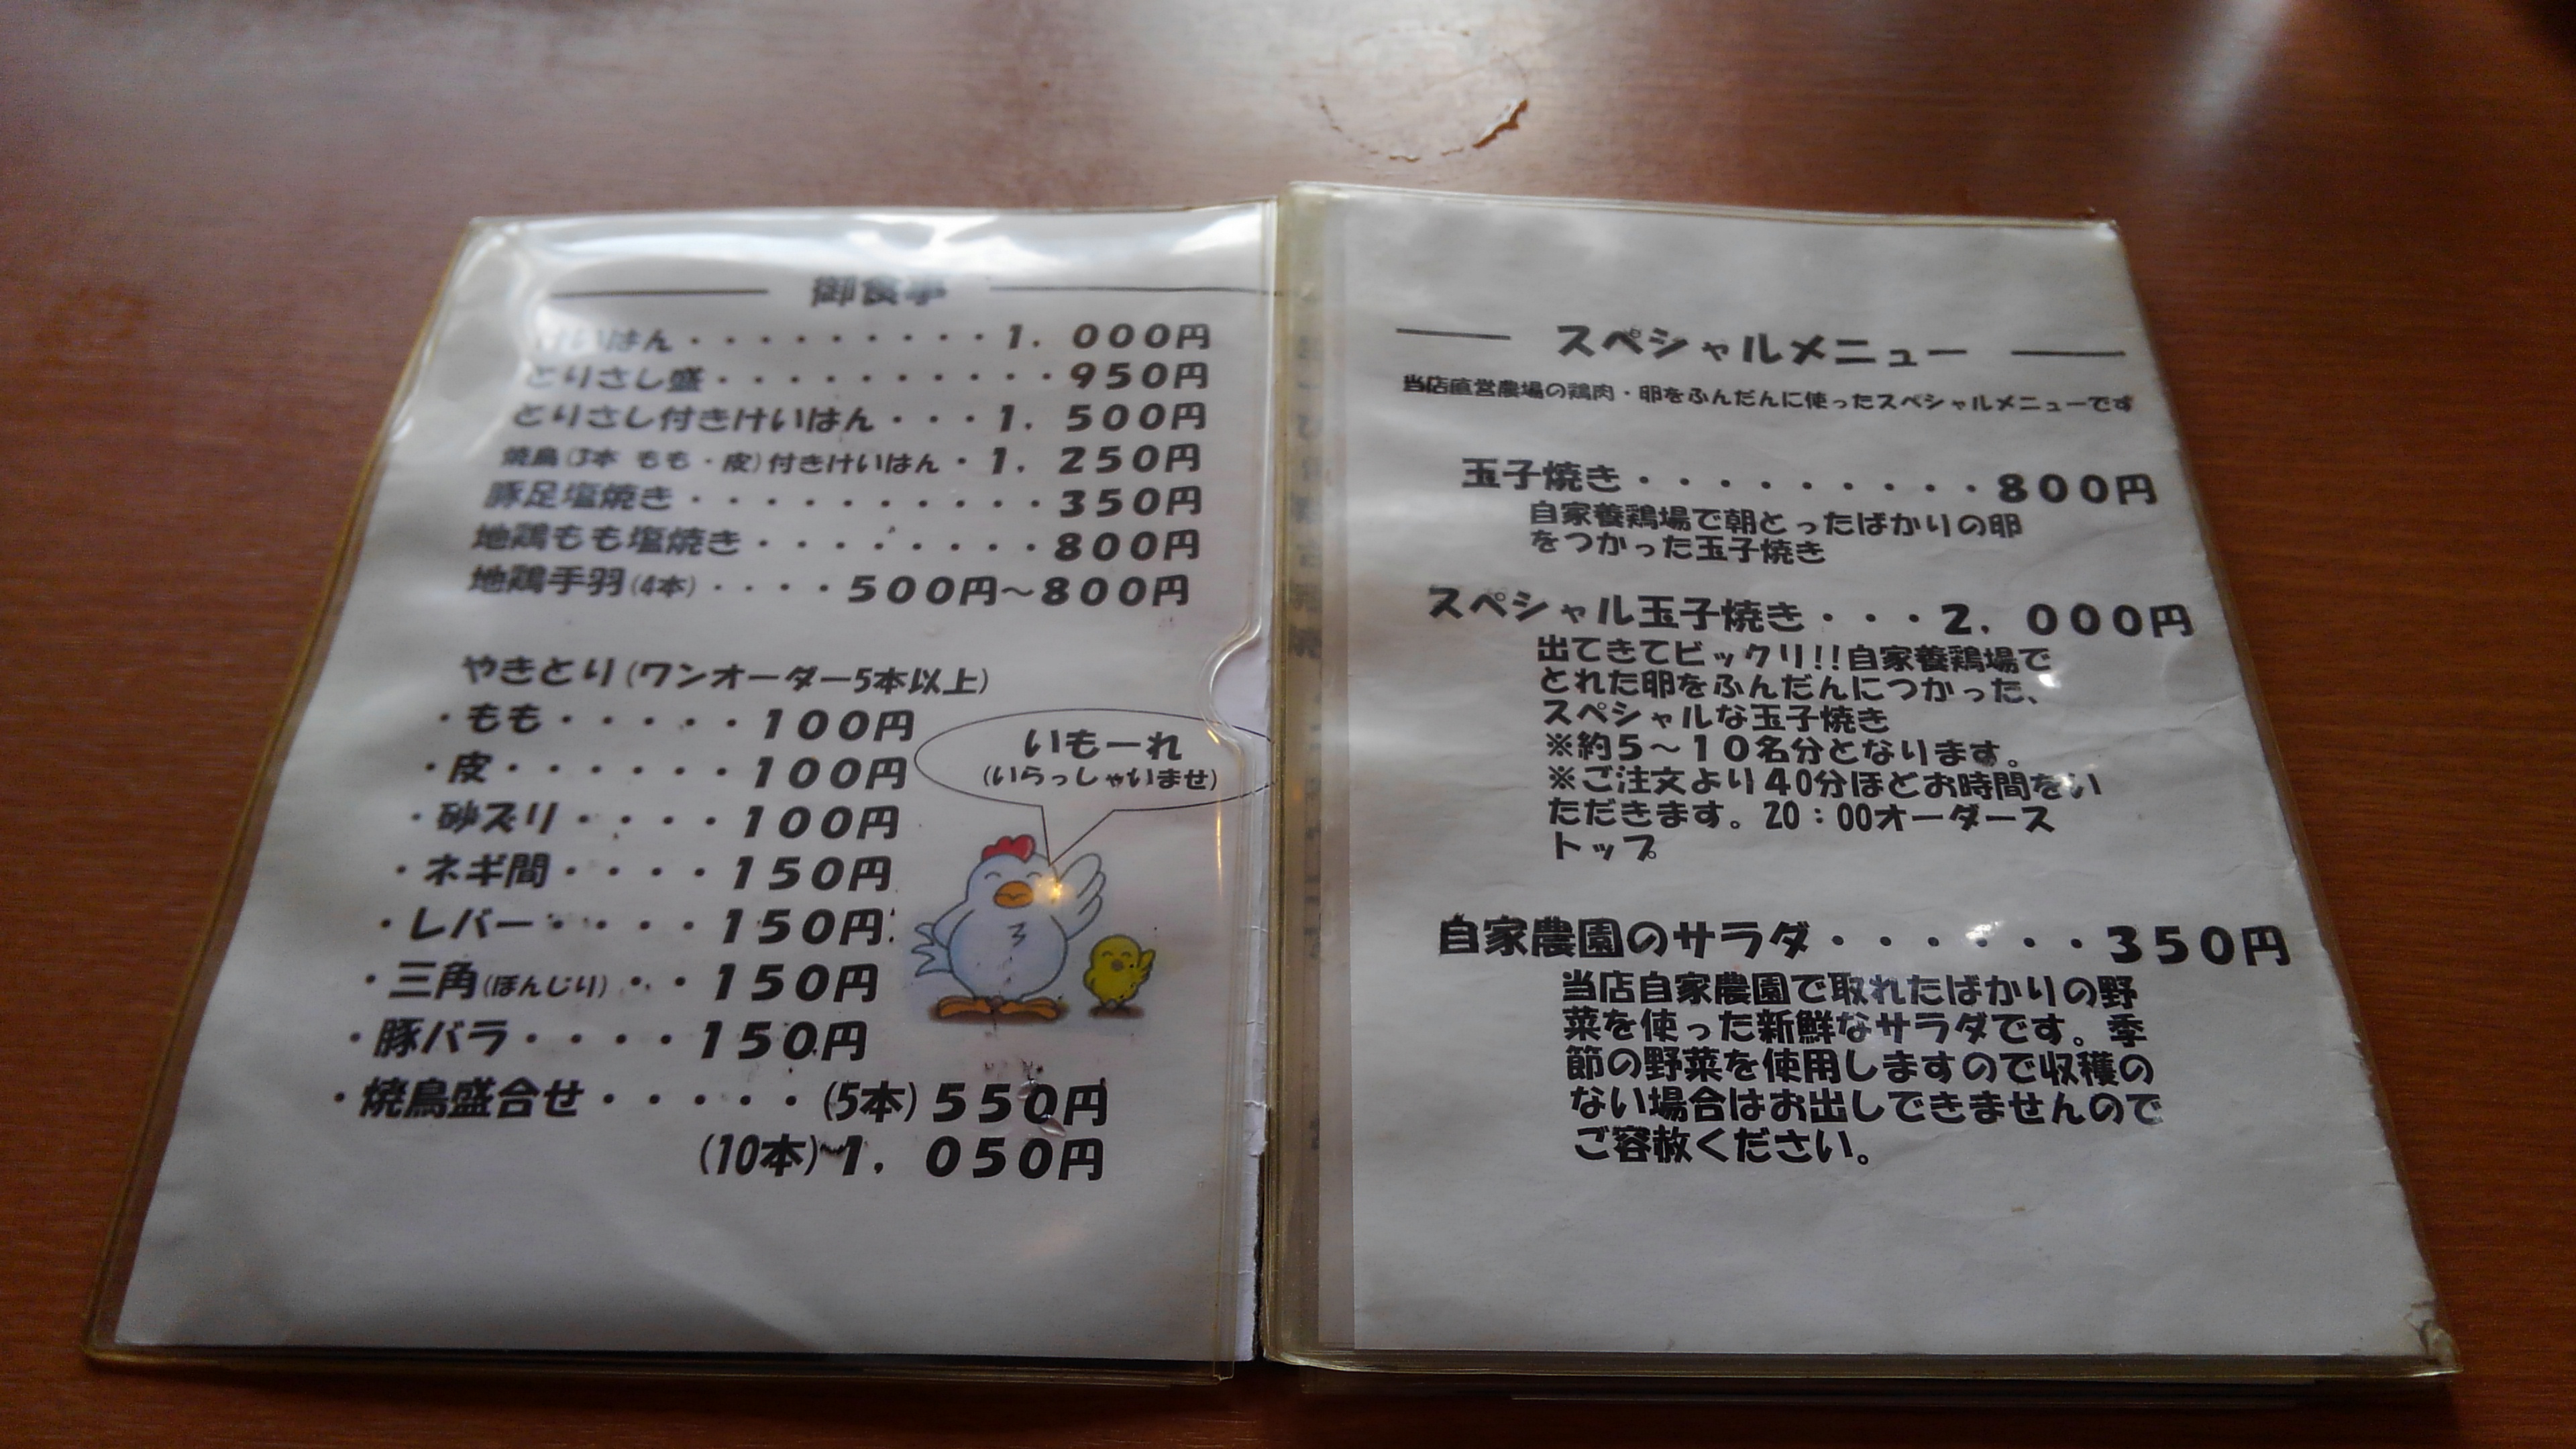 御食事
けいはん・・・・・・・・・1．000円
とりさし盛・・・・・・・・・・950円
とりさし付きけいはん・・・1．500円
焼鳥(3本 もも・皮)付きけいはん・1．250円
豚足塩焼き・・・・・・・・・・350円
地鶏もも塩焼き・・・・・・・・800円
地鶏手羽(4本)・・・・500円～800円
やきとり(ワンオーダー5本以上)
・もも・・・・・100円
・皮・・・・・・100円
・砂ズリ・・・・100円
・ネギ間・・・・150円
・レバー・・・・150円
・三角(ぼんじり)・・・150円
・豚バラ・・・・150円
・焼鳥盛合せ・・・・・(5本)550円
(10本)1．050円
いもーれ
(いらっしゃいませ)
スペシャルメニュー
当店直営農場の鶏肉・卵をふんだんに使ったスペシャルメニューです
玉子焼き・・・・・・・・・800円
自家養鶏場で朝とったばかりの卵
をつかった玉子焼き
スペシャル玉子焼き・・・2．000円
出てきてビックリ!!自家養鶏場で
とれた卵をふんだんにつかった、
スペシャルな玉子焼き
※約5～10名分となります。
※ご注文より40分ほどお時間をい
ただきます。20：00オーダース
トップ
自家農園のサラダ・・・・・・350円
当店自家農園で取れたばかりの野
菜を使った新鮮なサラダです。季
節の野菜を使用しますので収穫の
ない場合はお出しできませんので
ご容赦ください。